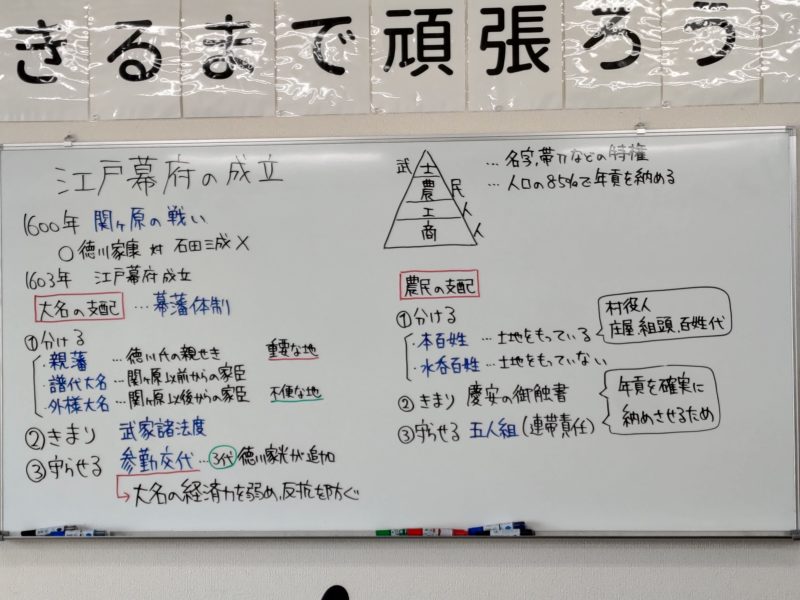 きるまで頑張ろう
江戸幕府の成立
1600年 関ヶ原の戦い
○徳川家康 対 石田三成×
1603年 江戸幕府成立
大名の支配 …幕藩体制
①分ける
・親藩 …徳川氏の親せき 重要な地
・譜代大名…関ヶ原以前からの家臣
・外様大名…関ヶ原以後からの家臣 不便な地
②きまり 武家諸法度
③守らせる 参勤交代…3代徳川家光が追加
→大名の経済力を弱め、反抗を防ぐ
武士 …名字、帯刀などの特権
農民 …人口の85%で年貢を納める
工人
商人
農民の支配
①分ける
・本百姓 …土地をもっている
村役人
庄屋、組頭、百姓代
・水呑百姓…土地をもっていない
②きまり 慶安の御触書
③守らせる 五人組(連帯責任)
年貢を確実に
納めさせるため